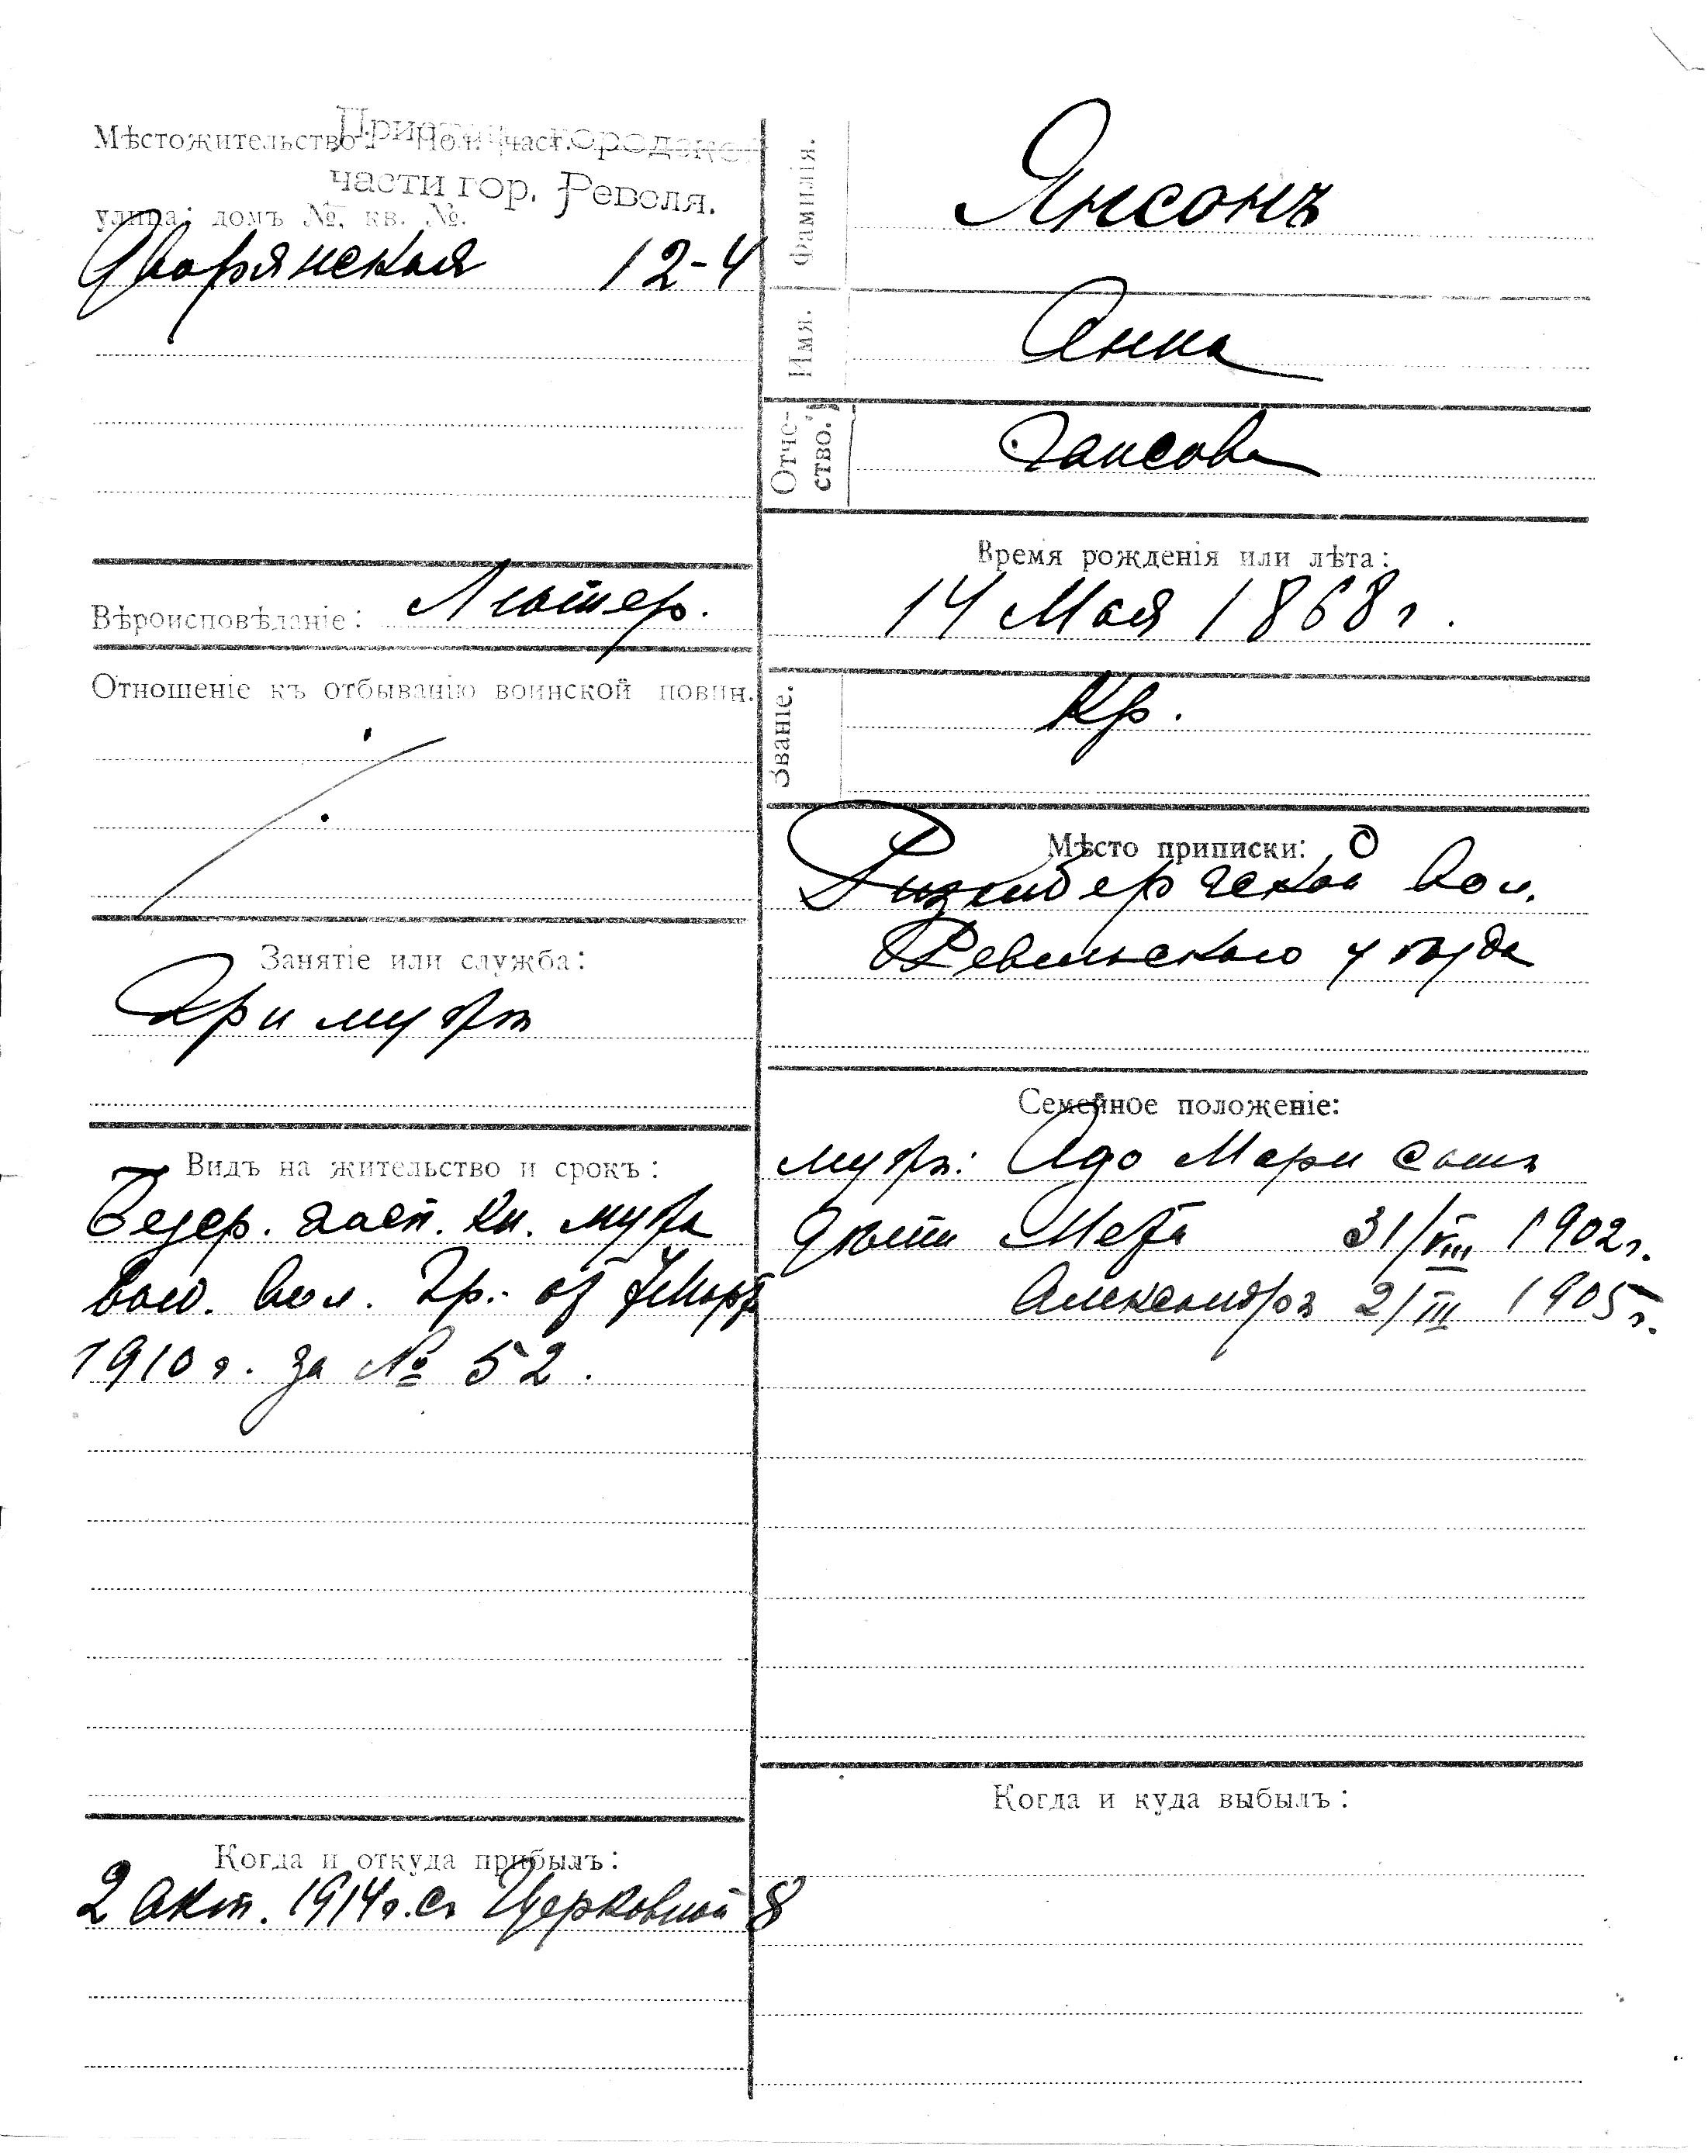 Мѣстожительство: Пол. част.
части гор. Ревеля.
улица: домъ №, кв. №.
Дворянская 12-4
Вѣроисповѣданіе: Лютер.
Отношеніе къ отбыванію воинской повин.
Занятіе или служба:
При мужѣ
Видъ на жительство и срокъ:
мужа
вол.
1910 г. за № 52.
Когда и откуда прибылъ:
2 Окт. 1914 г. съ Церковной 8
Фамилія. Янсонъ
Имя. Анна
Отче-
ство. Гансова
Время рожденія или лѣта:
14 Мая 1868 г.
Званіе. Кр.
Мѣсто приписки:
вол.
Ревельскаго уѣзда
Семейное положеніе:
мужъ: Адо Мари
дѣти Мета 31/VIII 1902 г.
Александръ 2/III 1905 г.
Когда и куда выбылъ: